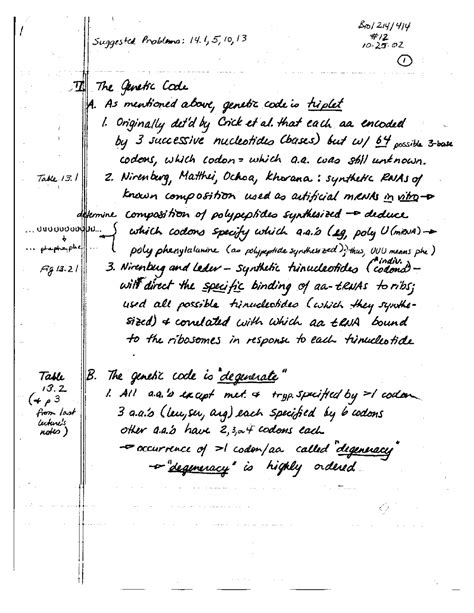 Biol 214/414
#12
10-25-02
Suggested Problems: 14.1, 5, 10, 13
1
II. The Genetic Code
A. As mentioned above, genetic code is triplet
1. Originally det'd by Crick et al. that each aa encoded
by 3 successive nucleotides (bases) but w/ 64 possible 3-base
codons, which codon = which a.a. was still unknown.
Table 13.1
2. Nirenberg, Matthei, Ochoa, Khorana: synthetic RNAs of
known composition used as artificial mRNAs in vitro →
determine composition of polypeptides synthesized → deduce
... UUUUUUUUUU...
which codons specify which a.a.'s (eg, poly U (mRNA) →
... phe phe phe
poly phenylalanine (as polypeptide synthesized); thus, UUU means phe)
Fig 13.21
3. Nirenberg and Leder - synthetic trinucleotides (indiv. codons) -
will direct the specific binding of aa-tRNAs to ribs;
used all possible trinucleotides (which they synthe-
sized) & correlated with which aa tRNA bound
to the ribosomes in response to each trinucleotide
Table
13.2
(& p 3
from last
lecture's
notes)
B. The genetic code is "degenerate"
1. All a.a.'s except met. & tryp. specified by >1 codon
3 a.a.'s (leu, ser, arg) each specified by 6 codons
other a.a.'s have 2, 3, or 4 codons each
→ occurrence of >1 codon/aa called "degeneracy"
→ "degeneracy" is highly ordered